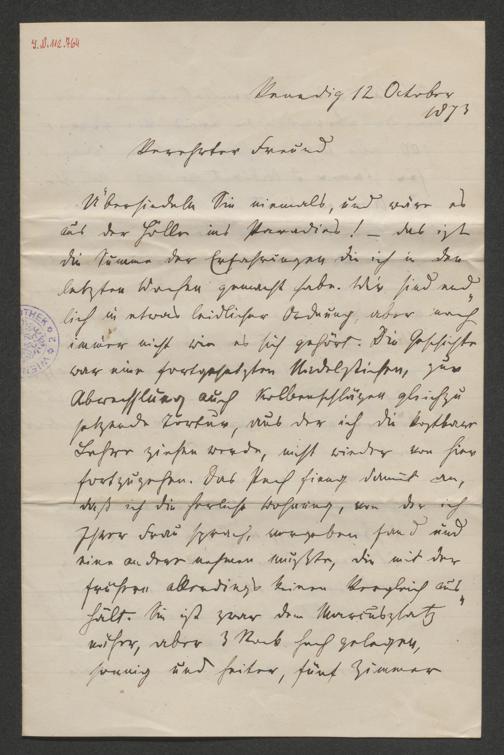 I.N.112.764
Venedig 12 October
1873
Verehrter Freund
Übersiedeln Sie niemals, und wäre es
aus der Hölle ins Paradies! – das ist
die Summe der Erfahrungen die ich in den
letzten Wochen gemacht habe. Wir sind end
lich in etwas leidlicher Ordnung, aber noch
immer nicht wie es sich gehört. Die Geschichte
war eine fortgesetzten Nadelstichen, zur
Abwechslung auch Kolbenschlägen gleichzu
setzende Tortur, aus der ich die kostbare
Lehre ziehen werde, nicht wieder von hier
fortzugehen. Das Pech fieng damit an,
daß ich die herrliche Wohnung, von der ich
Ihrer Frau sprach, vergeben fand und
eine andere nehmen mußte, die mit der
frühern allerdings keinen Vergleich aus
hält. Sie ist zwar dem Marcusplatz
näher, aber 3 Stock hoch gelegen,
sonnig und heiter, fünf Zimmer